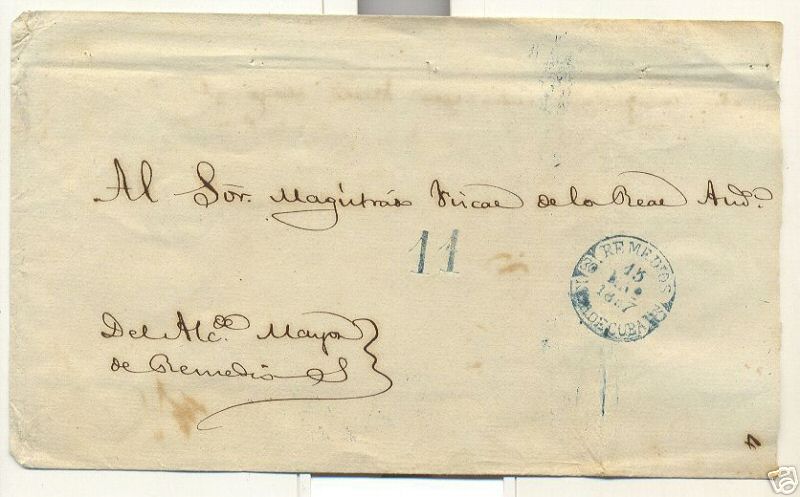 Al Sõr. Magistrado Fiscal de la Real Aud.ª
11
REMEDIOS
15
1857
DE CUBA
Del Alc.de Mayor
de Remedios
4